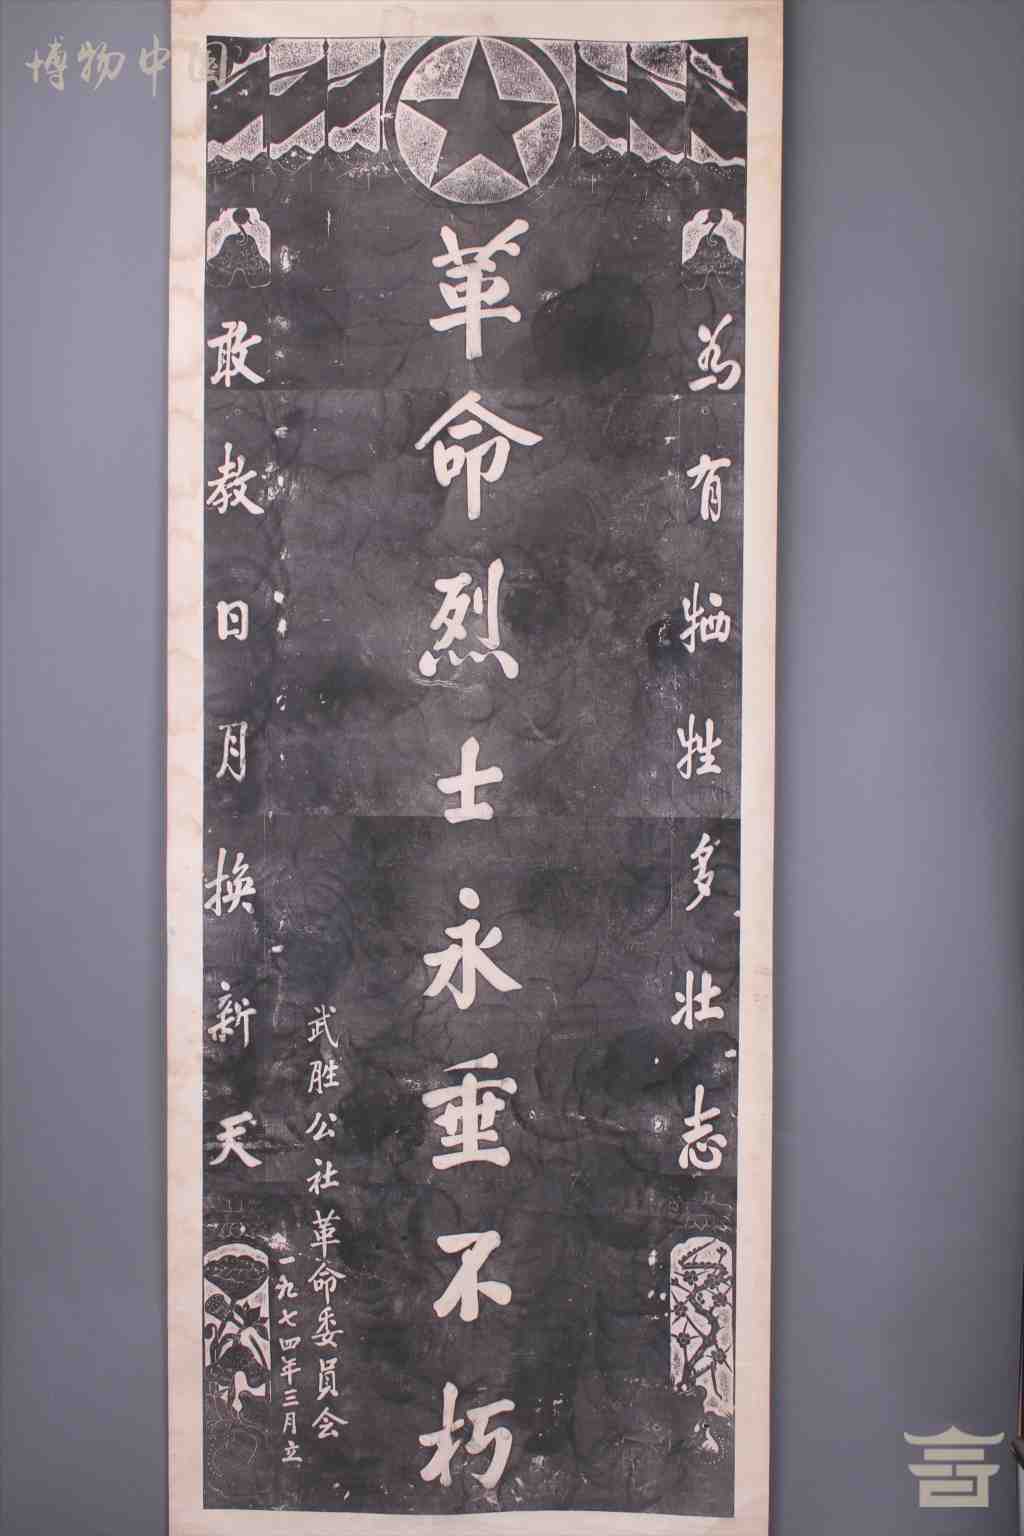 博物中国
为有牺牲多壮志
革命烈士永垂不朽
武胜公社革命委員会
一九七四年三月立
敢教日月换新天